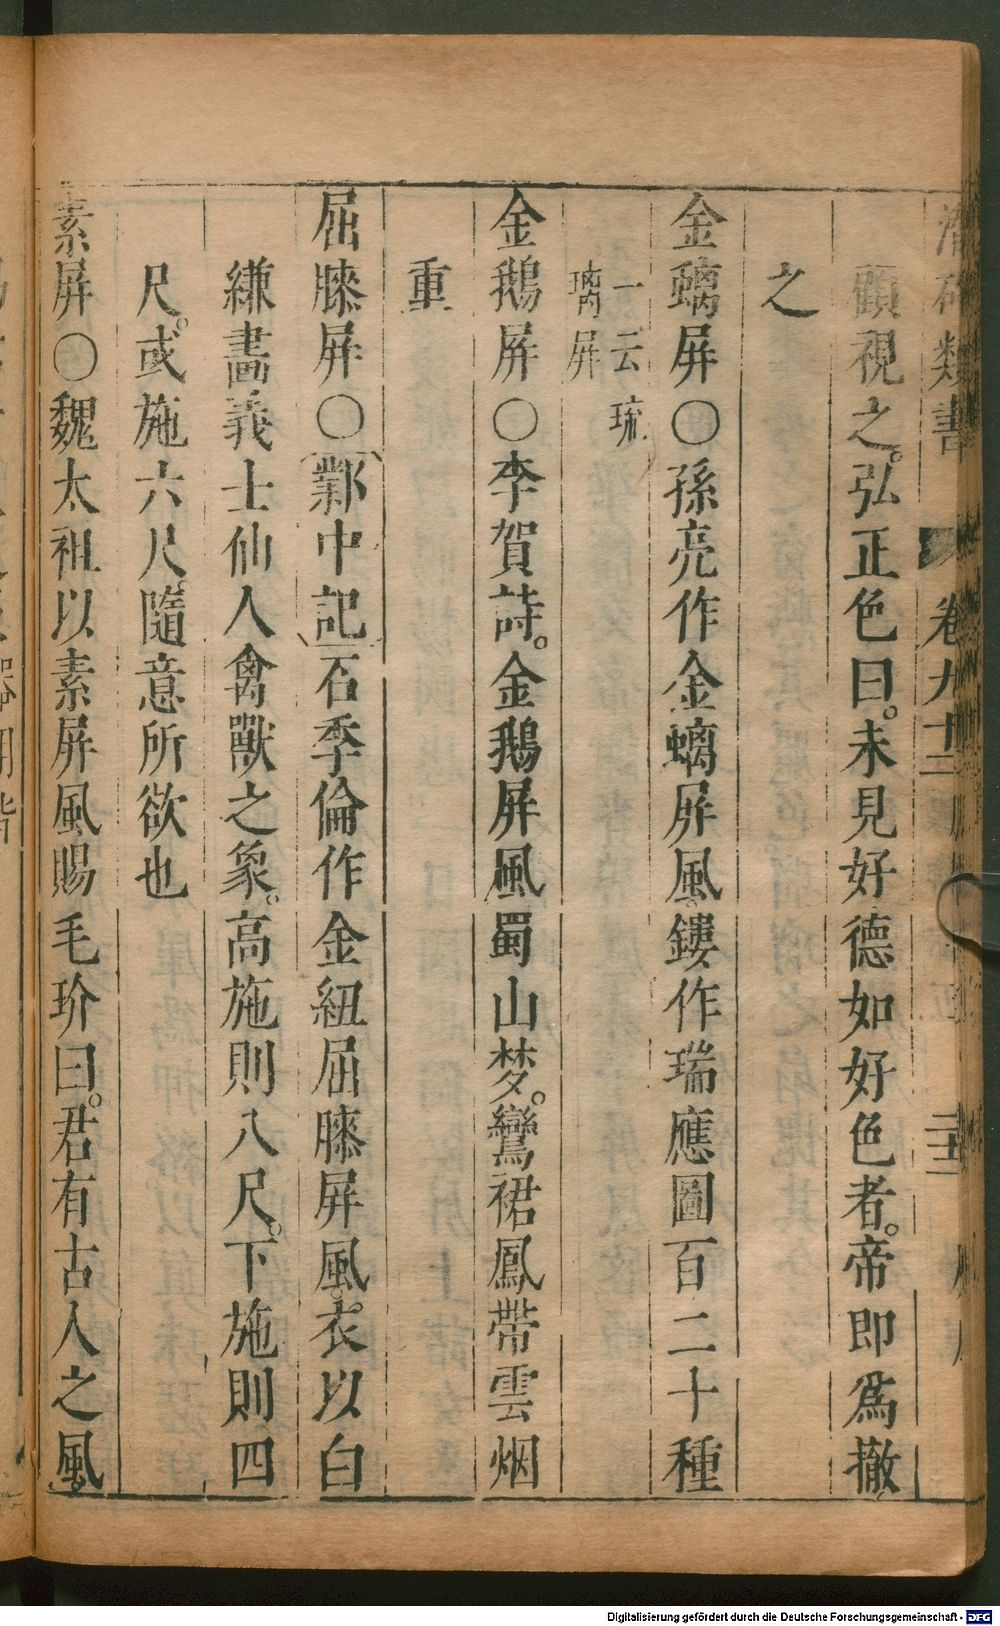 潛確類書 卷九十三
顧視之。弘正色曰。未見好德如好色者。帝即爲撤
之
金螭屏〇孫亮作金螭屏風。鏤作瑞應圖百二十種
一云琉
璃屏
金鵝屏〇李賀詩。金鵝屏風蜀山梦。鸞裙鳳帶雲烟
重
屈膝屏〇鄴中記石季倫作金紐屈膝屏風。衣以白
縑畫義士仙人禽獸之象。高施則八尺。下施則四
尺。或施六尺。隨意所欲也
素屏〇魏太祖以素屏風賜毛玠曰。君有古人之風。
Digitalisierung gefördert durch die Deutsche Forschungsgemeinschaft - DFG